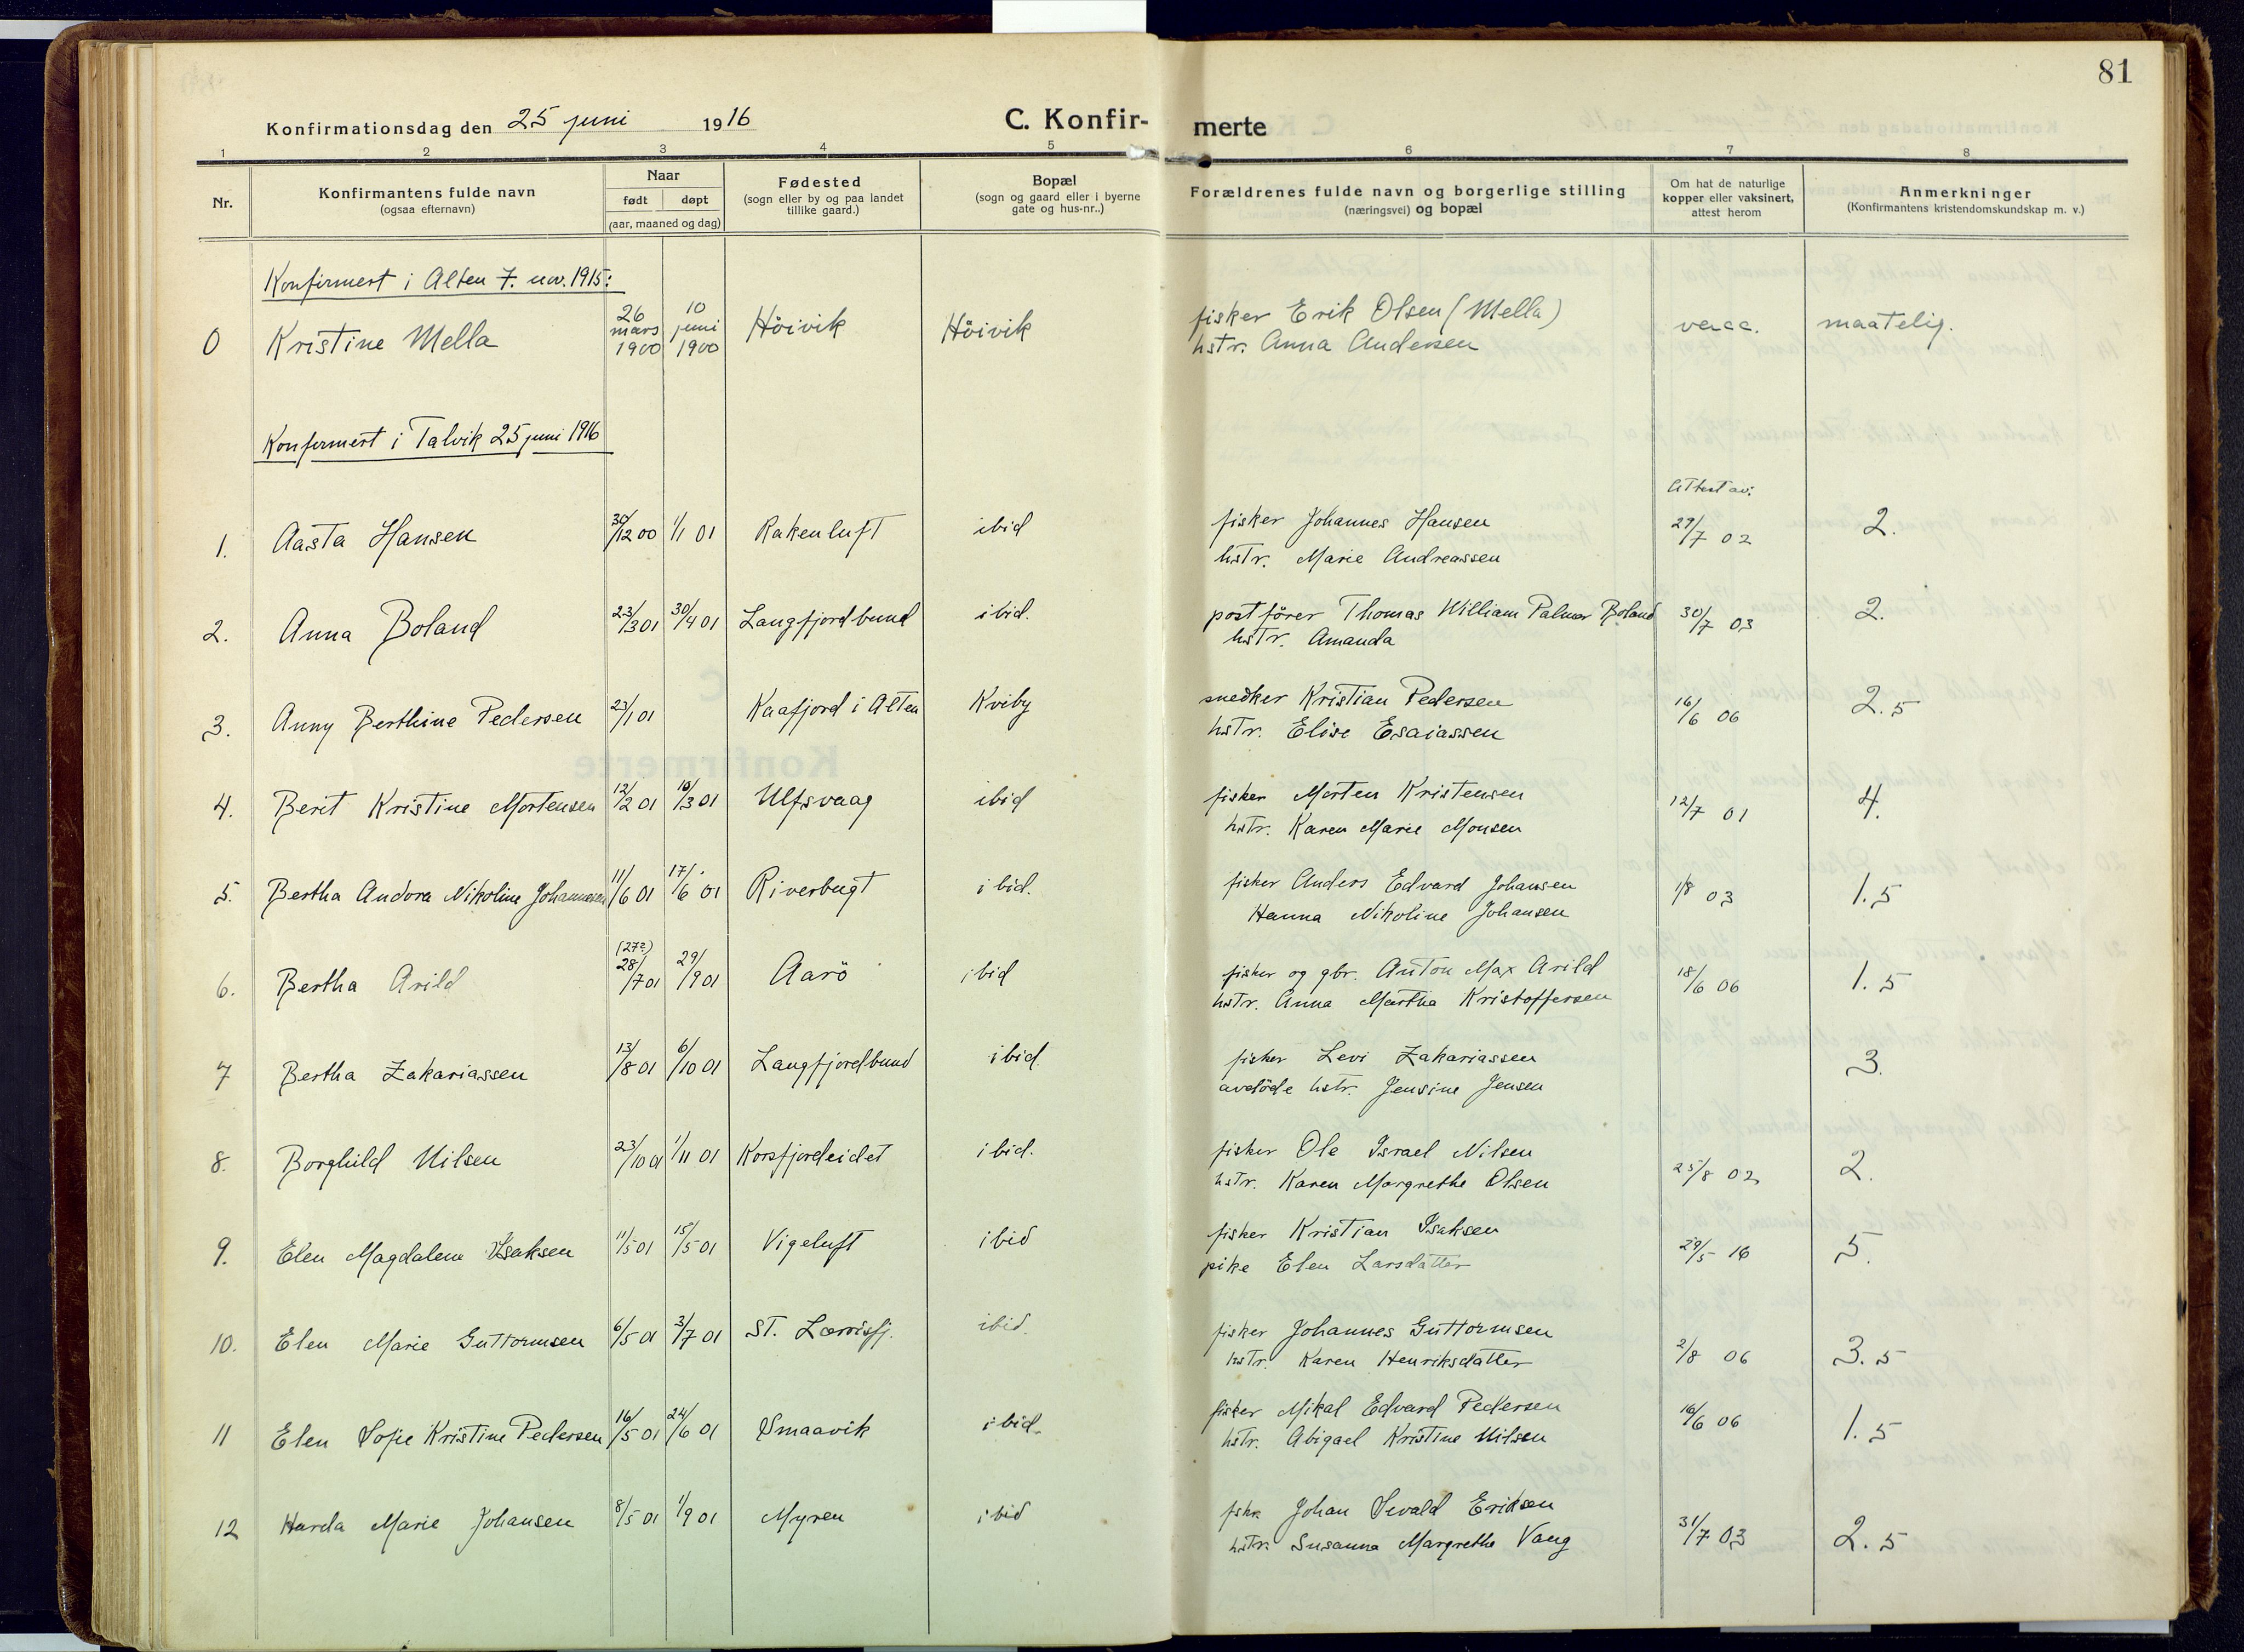 81
Konfirmationsdag den 25 juni 1916 C. Konfirmerte
1 2 3 4 5 6 7 8
Nr.
Konfirmantens fulde navn
(ogsaa efternavn)
Naar
født døpt
(aar, maaned og dag)
Fødested
(sogn eller by og paa landet
tillike gaard.)
Bopæl
(sogn og gaard eller i byerne
gate og hus-nr..)
Forældrenes fulde navn og borgerlige stilling
(næringsvei) og bopæl
Om hat de naturlige
kopper eller vaksinert,
attest herom
Anmerkninger
(Konfirmantens kristendomskundskap m. v.)
Konfirmert i Alten 7. nov. 1915:
0 Kristine Mella 26 mars 1900 10 juni 1900 Höivik Höivik fisker Erik Olsen (Mella) vacc. maatelig.
hstr. Anna Andersen
Konfirmert i Talvik 25 juni 1916
Attest av:
1. Aasta Hansen 30/12 00 1/1 01 Rakenluft ibid fisker Johannes Hansen 29/7 02 2.
hstr. Marie Andreassen
2. Anna Boland 23/3 01 30/4 01 Langfjordbund ibid. postförer Thomas William Palmer Boland 30/7 03 2.
hstr. Amanda
3. Anny Berthine Pedersen 23/1 01 Kaafjord i Alten Kviby snedker Kristian Pedersen 16/6 06 2.5
hstr. Elise Esaiassen
4. Berit Kristine Mortensen 12/2 01 10/3 01 Ulfsvaag ibid fisker Morten Kristensen 12/7 01 4.
hstr. Karen Marie Monsen
5. Bertha Andora Nikoline Johannesen 11/6 01 17/6 01 Riverbugt ibid. fisker Anders Edvard Johansen 1/8 03 1.5
Hanna Nikoline Johansen
6. Bertha Arild (27?) 28/7 01 29/9 01 Aarö ibid fisker og gbr. Anton Max Arild 18/6 06 1.5
hstr. Anna Martha Kristoffersen
7 Bertha Zakariassen 13/8 01 6/10 01 Langfjordbund ibid. fisker Levi Zakariassen 3.
avdöde hstr. Jensine Jensen
8. Borghild Nilsen 23/10 01 1/11 01 Korsfjordeidet ibid. fisker Ole Israel Nilsen 25/8 02 2.
hstr. Karen Margrethe Olsen
9. Elen Magdalena Isaksen 11/5 01 15/5 01 Vigeluft ibid fisker Kristian Isaksen 29/5 16 5.
pike Elen Larsdatter
10. Elen Marie Guttormsen 6/5 01 3/7 01 St. Lerrisfj. ibid. fisker Johannes Guttormsen 2/8 06 3.5
hstr. Karen Henriksdatter
11 Elen Sofie Kristine Pedersen 16/5 01 24/6 01 Smaavik ibid. fisker Mikal Edvard Pedersen 16/6 06 1.5
hstr. Abigael Kristine Nilsen
12 Harda Marie Johansen 8/5 01 1/9 01 Myren ibid fskr. Johan Sevald Eriksen 31/7 03 2.5
hstr. Susanna Margrethe Vang